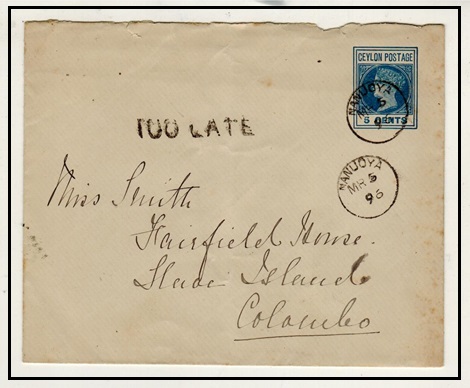 CEYLON POSTAGE
5 CENTS
NANUOYA
MR 5
9
TOO LATE
NANUOYA
MR 5
96
Miss Smith
Fairfield House.
Slave Island
Colombo